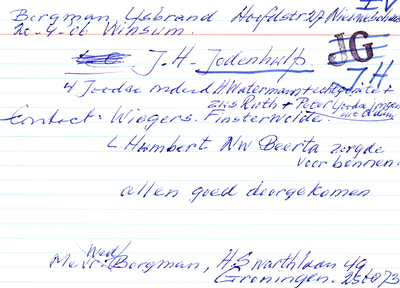 Borgman IJsbrand Hoofdstr 27 Nieuwolda
20-4-06 Winsum.
JG
J.H. Jodenhulp.
J.H
4 Joodse onderd. H Watermann + echtgenote +
zus Ruth + Peter Joodse jongen
uit A'dam
Contact: Wiegers. Finsterwolde.
L Humbert NW Beerta zorgde
voor bonnen.
allen goed doorgekomen
Wed
Mevr. Borgman, H.Swarthlaan 49
Groningen. 25-1-073